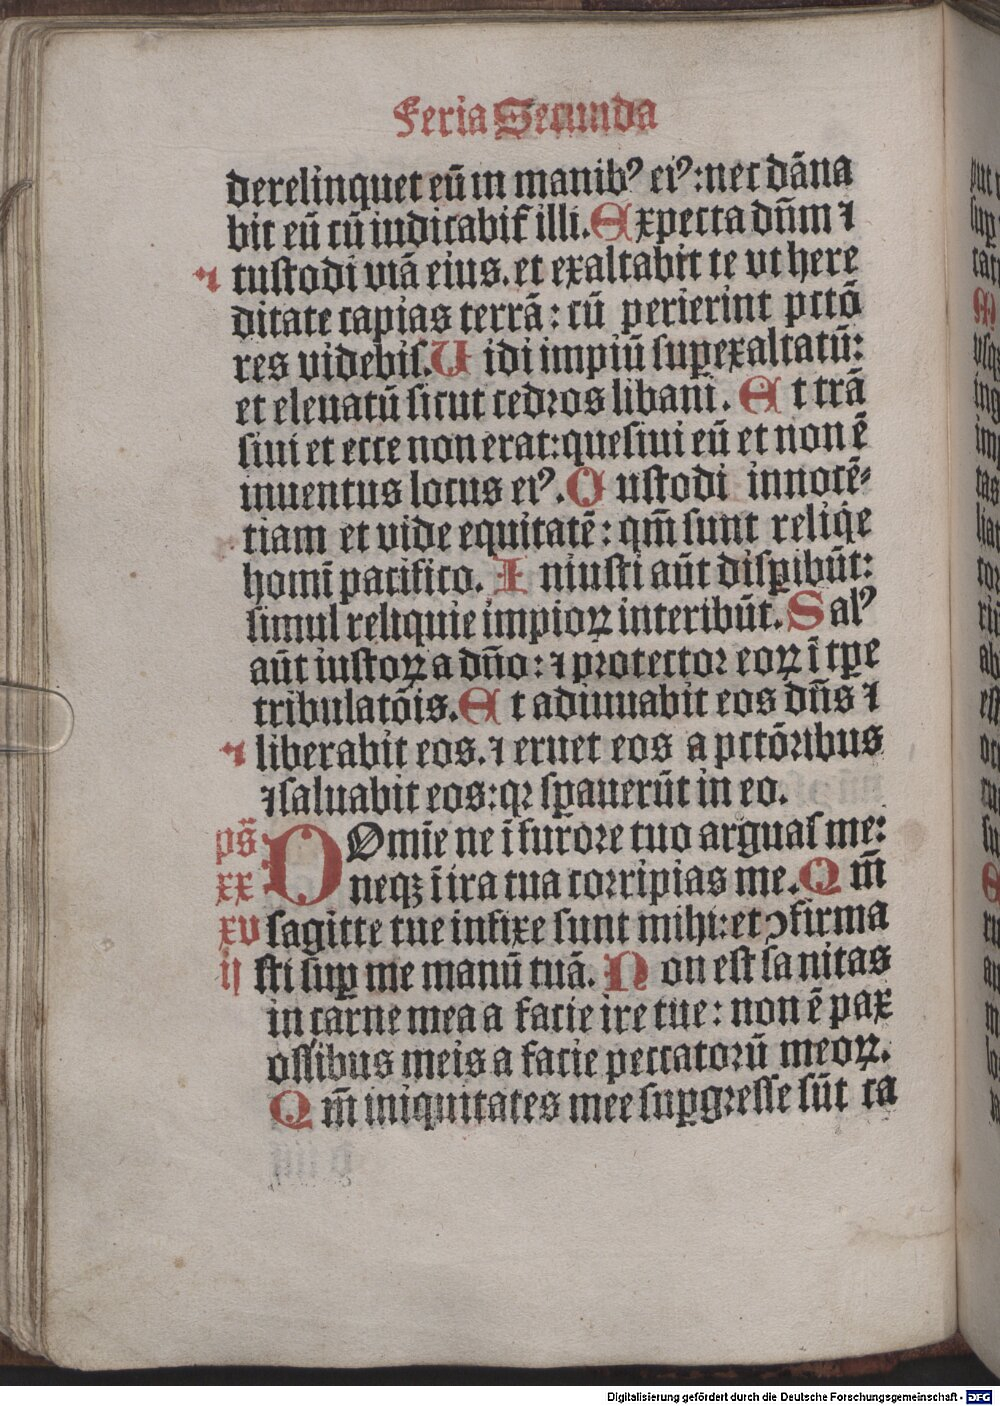 Feria Secunda
derelinquet eū in manibꝰ eiꝰ: nec dāna
bit eū cū iudicabit̉ illi. Expecta dn̄m ⁊
custodi viā eius. et exaltabit te vt here
ditate capias terrā: cū perierint pctō
res videbis. Uidi impiū suꝑexaltatū:
et eleuatū sicut cedros libani. Et trā
siui et ecce non erat: quesiui eū et non ē
inuentus locus eiꝰ. Custodi innocē-
tiam et vide equitatē: qm̄ sunt reliq̇e
homī pacifico. Iniusti aūt disꝑibūt:
simul reliquie impioꝝ interibūt. Salꝰ
aūt iustoꝝ a dn̄o: ⁊ protector eoꝝ ī tꝑe
tribulatōis. Et adiuuabit eos dn̄s ⁊
liberabit eos. ⁊ eruet eos a pctōribus
⁊ saluabit eos: qꝛ sꝑauerūt in eo.
ps̄ DOmīe ne ī furore tuo arguas me:
xx neqꝫ ī ira tua corripias me. Qm̄
xv sagitte tue infixe sunt mihi: et ꝯfirma
ij sti suꝑ me manū tuā. Non est sanitas
in carne mea a facie ire tue: non ē pax
ossibus meis a facie peccatorū meoꝝ.
Qm̄ iniquitates mee suꝑgresse sūt ca
Digitalisierung gefördert durch die Deutsche Forschungsgemeinschaft - DFG